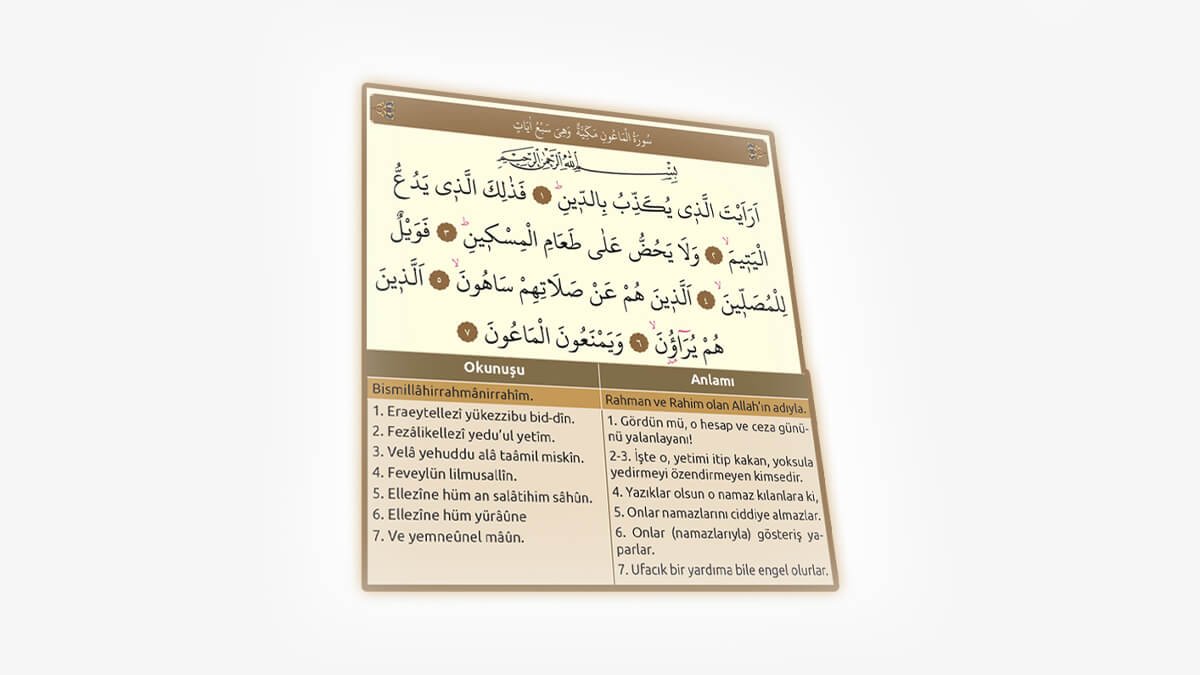 سُورَةُ الْمَاعُونِ مَكِّيَّةٌ وَهِىَ سَبْعُ اٰيَاتٍ
بِسْمِ اللّٰهِ الرَّحْمٰنِ الرَّحِيمِ
اَرَاَيْتَ الَّذ۪ى يُكَذِّبُ بِالدّ۪ينِۜ ﴿١﴾ فَذٰلِكَ الَّذ۪ى يَدُعُّ
الْيَت۪يمَۙ ﴿٢﴾ وَلَا يَحُضُّ عَلٰى طَعَامِ الْمِسْك۪ينِۜ ﴿٣﴾ فَوَيْلٌ
لِلْمُصَلّ۪ينَۙ ﴿٤﴾ اَلَّذ۪ينَ هُمْ عَنْ صَلَاتِهِمْ سَاهُونَۙ ﴿٥﴾ اَلَّذ۪ينَ
هُمْ يُرَٓاؤُ۫نَۙ ﴿٦﴾ وَيَمْنَعُونَ الْمَاعُونَ ﴿٧﴾
Okunuşu
Bismillâhirrahmânirrahîm.
1. Eraeytellezî yükezzibu bid-dîn.
2. Fezâlikellezî yedu'ul yetîm.
3. Velâ yehuddu alâ taâmil miskîn.
4. Feveylün lilmusallîn.
5. Ellezîne hüm an salâtihim sâhûn.
6. Ellezîne hüm yürâûne
7. Ve yemneûnel mâûn.
Anlamı
Rahman ve Rahim olan Allah'ın adıyla.
1. Gördün mü, o hesap ve ceza günü-
nü yalanlayanı!
2-3. İşte o, yetimi itip kakan, yoksula
yedirmeyi özendirmeyen kimsedir.
4. Yazıklar olsun o namaz kılanlara ki,
5. Onlar namazlarını ciddiye almazlar.
6. Onlar (namazlarıyla) gösteriş ya-
parlar.
7. Ufacık bir yardıma bile engel olurlar.